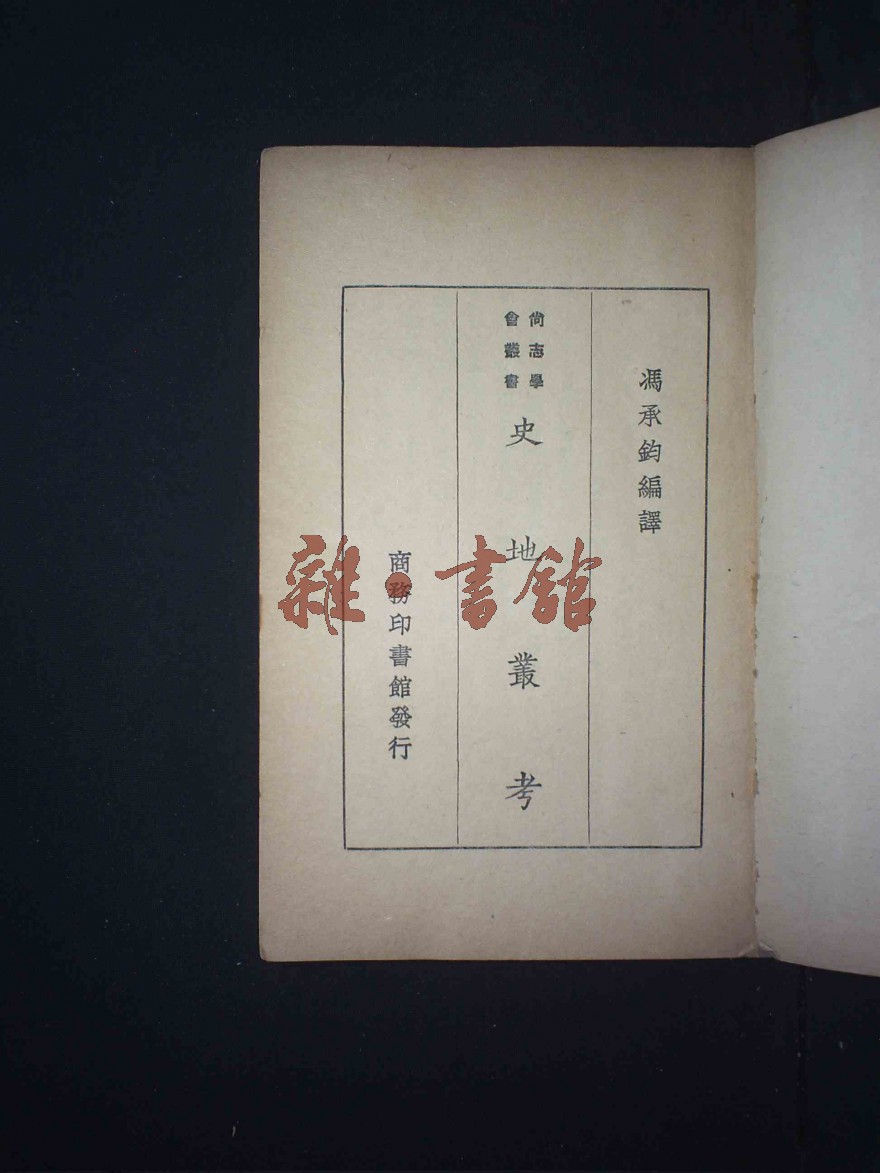 馮承鈞編譯
尚志學
會叢書
史地叢考
商務印書館發行
雜·書館